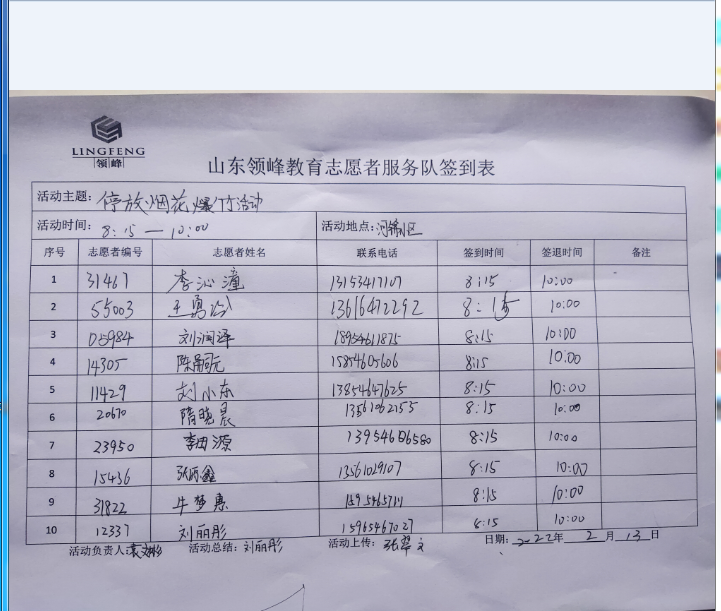 LINGFENG
领峰
山东领峰教育志愿者服务队签到表
活动主题：停放烟花爆竹活动
活动时间：8:15—10:00 活动地点：河锦小区
序号 志愿者编号 志愿者姓名 联系电话 签到时间 签退时间 备注
1 31467 李沁潼 13153417107 8:15 10:00
2 55003 王勇 13616472292 8:15 10:00
3 05984 刘润泽 18954611875 8:15 10:00
4 14305 陈 元 15854605606 8:15 10:00
5 11429 刘小东 13854647625 8:15 10:00
6 20670 隋晓晨 13561062155 8:15 10:00
7 23950 李田源 13954606580 8:15 10:00
8 15436 张丽鑫 13561029107 8:15 10:00
9 31822 牛梦惠 8:15 10:00
10 12337 刘丽彤 15965467027 8:15 10:00
活动负责人： 活动总结：刘丽彤 活动上传：张翠文 日期：2022年2月13日